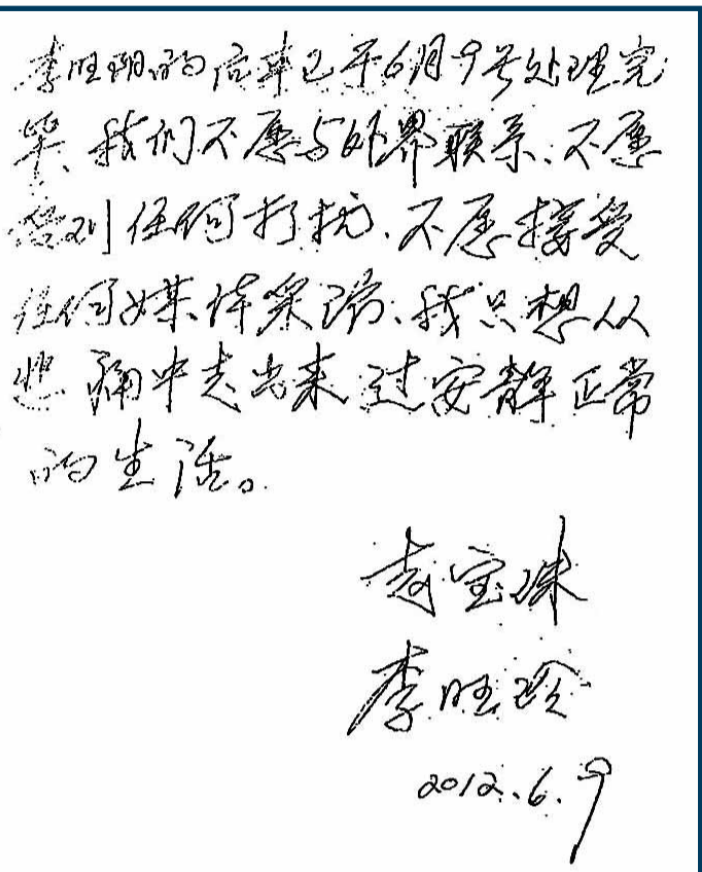 李旺阳的后事已于6月9号处理完
毕、我们不愿与外界联系、不愿
受到任何打扰、不愿接受
任何媒体采访、我只想从
悲痛中走出来过安静正常
的生活。
赵宝珠
李旺玲
2012.6.9